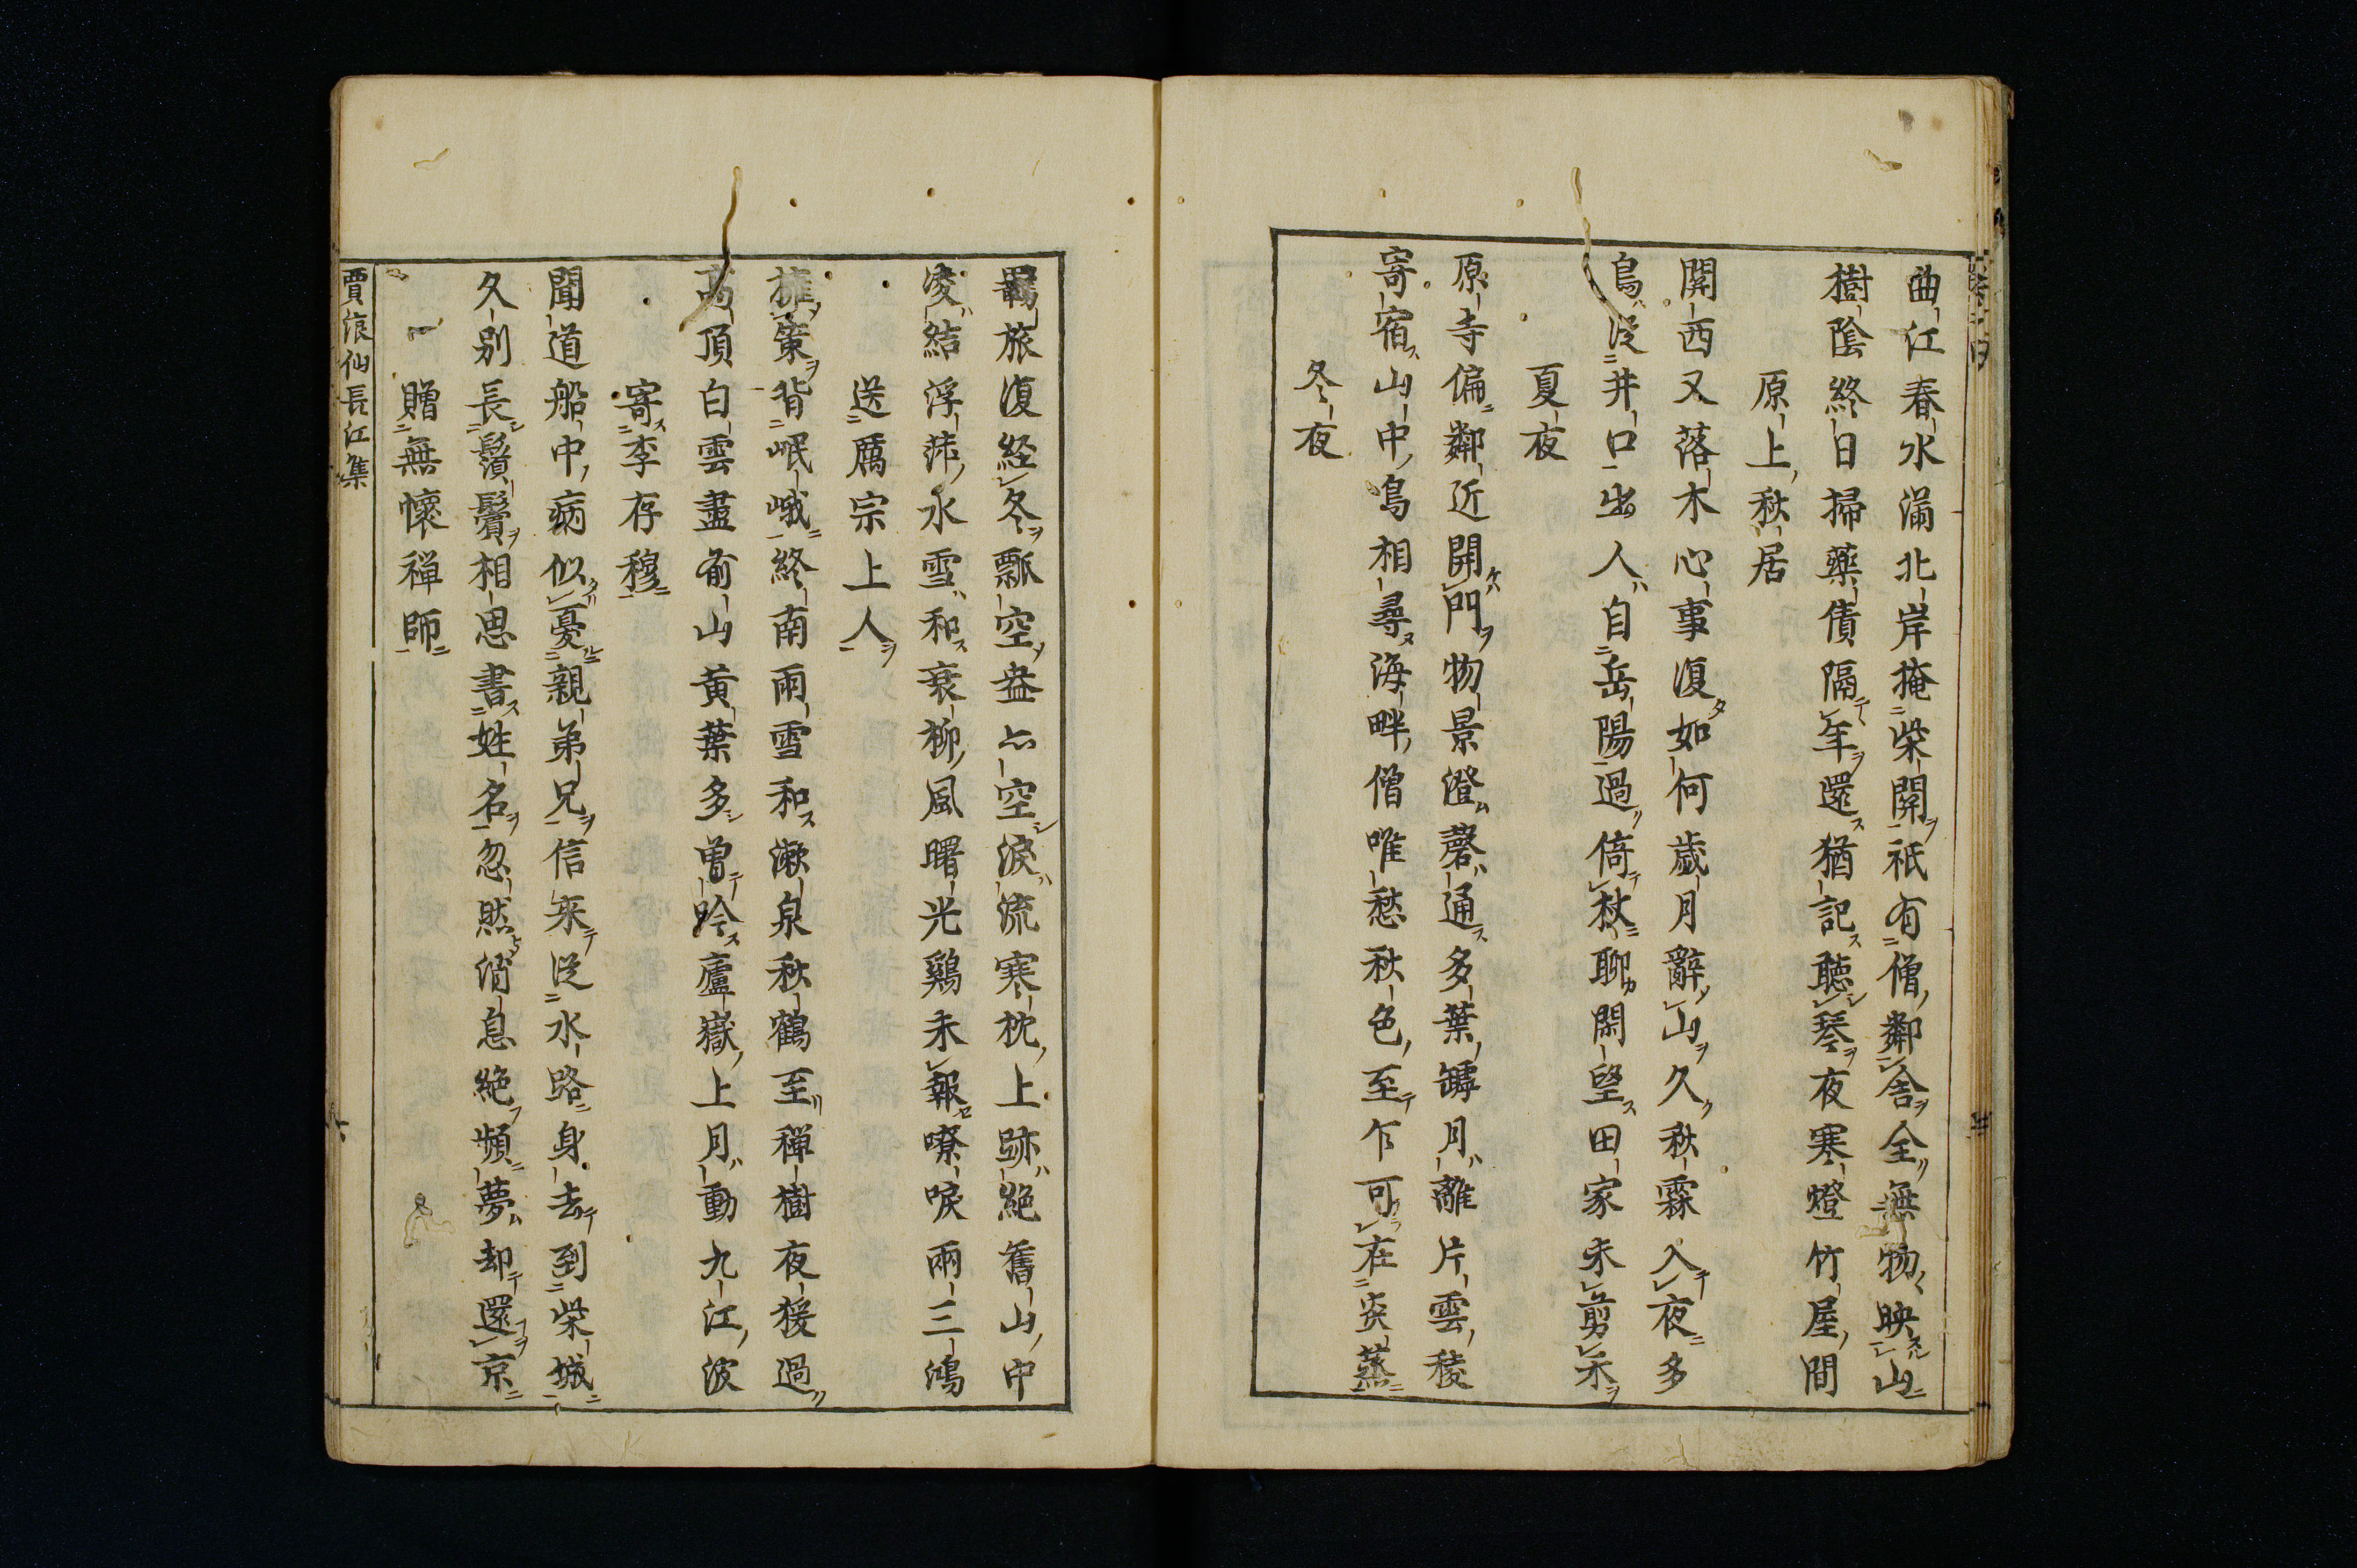 曲江春水滿北岸掩柴開祇有僧鄰舍全無物映山
樹陰終日掃藥債隔年還猶記聽琴夜寒燈竹屋間
原上秋居
関西又落木心事復如何歳月辭山久秋霖入夜多
鳥從井口出人自岳陽過倚杖聊閑望田家未剪禾
夏夜
原寺偏鄰近開門物景澄磬通多葉罅月離片雲稜
寄宿山中鳥相尋海畔僧唯愁秋色至乍可在炎蒸
冬夜
羇旅復経冬瓢空盎亦空淚流寒枕上跡絶舊山中
凌結浮萍水雪和衰柳風曙光鷄未報嘹唳兩三鴻
送厲宗上人
擁策背岷峨終南雨雪和漱泉秋鶴至禪樹夜猨過
高頂白雲盡前山黄葉多曽吟廬嶽上月動九江波
寄李存穆
聞道船中病似憂親弟兄信來從水路身去到柴城
久別長鬚鬢相思書姓名忽然消息絶頻夢却還京
贈無懷禅師
賈浪仙長江集